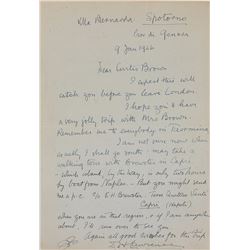 Villa Bernarda Spotorno
Prov. di Genova
9 Jan 1926
Dear Curtis Brown
I expect this will
catch you before you leave London
I hope you & have
a very jolly trip with Mrs Brown.
Remember me to everybody in Taormina.
I am not sure now when
exactly I shall go south: may take a
walking tour with Brewster in Capri
- which island, by the way, is only two hours
by boat from Naples. - But you might send
me a p.c. c/o E H Brewster, Torre Quattro Venti
Capri (Napoli)
when you are in that region, & if I am anywhere
about, I'll run over to see you
Again all good wishes for the trip
D. H. Lawrence